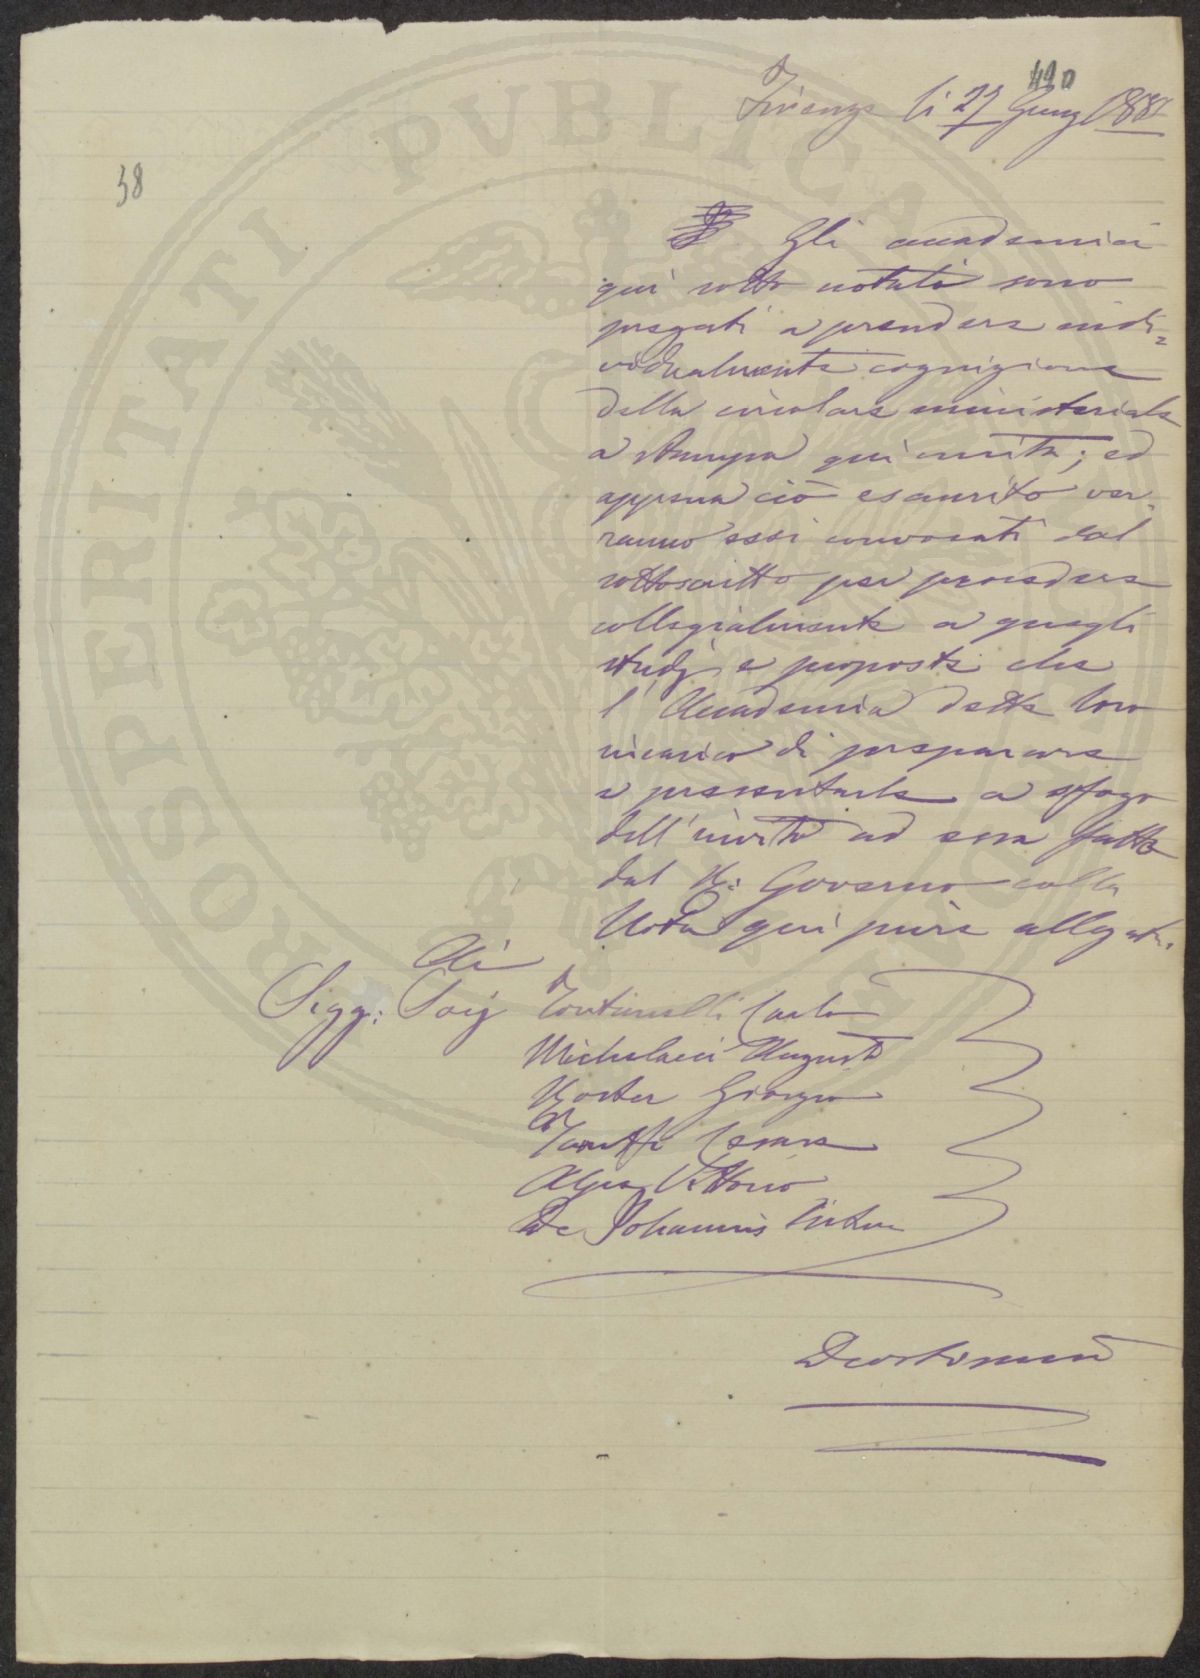 490
Firenze li 27 Giug 188
38
Gli accademici
qui sotto notati sono
pregati a prendere indi=
vidualmente cognizione
della circolare ministeriale
a stampa qui unita; ed
appena ciò esaurito ver
ranno essi convocati dal
sottoscritto per procedere
collegialmente a quegli
studj e proposte che
l'Accademia dette loro
incarico di preparare
e presentarle a sfogo
dell'invito ad essa fatto
dal R: Governo colla
Nota qui pure allegata.
Ai
Sigg: Socj Fontanelli Carlo
Michelacci Augusto
Roster Giorgio
Taruffi Cesare
Alpe Vittorio
De Johannis Arturo
PROSPERITATI PVBLICAE